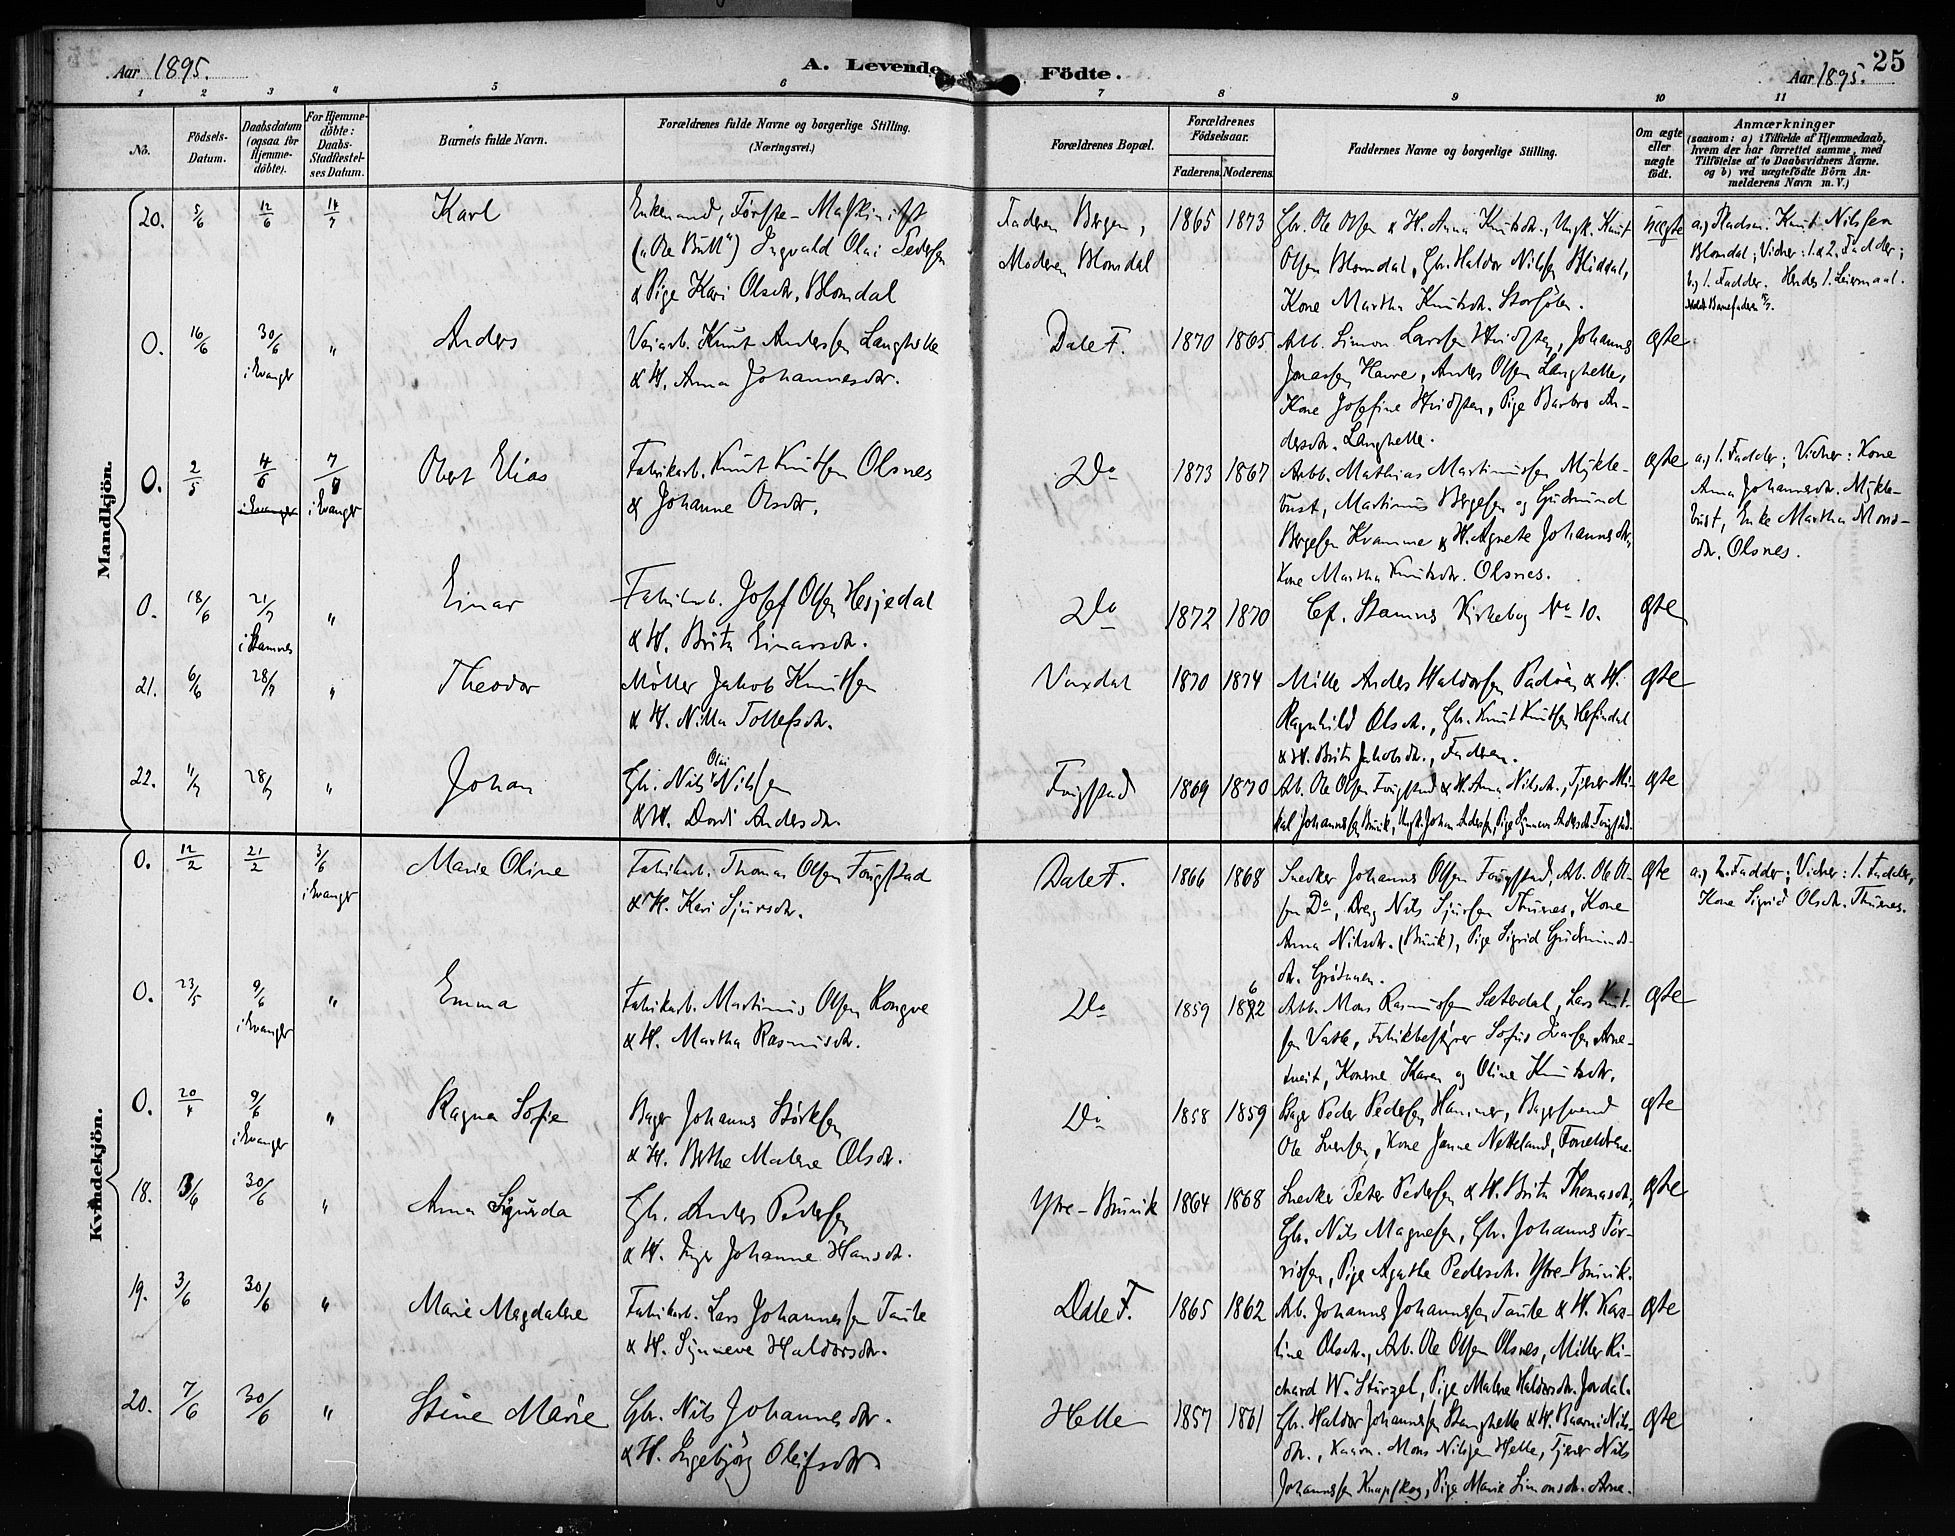 Aar 1895.
A. Levende Födte.
Aar 1895.
25
1 2 3 4 5 6 7 8 9 10 11
No.
Födsels-
Datum.
Daabsdatum
(ogsaa for
Hjemme-
döbte).
For Hjemme-
döbte:
Daabs-
Stadfæstel-
ses Datum.
Barnets fulde Navn.
Forældrenes fulde Navne og borgerlige Stilling.
(Næringsvei.)
Forældrenes Bopæl.
Forældrenes
Födselsaar.
Faderens. Moderens.
Faddernes Navne og borgerlige Stilling.
Om ægte
eller
uægte
födt.
Anmærkninger
(saasom: a) i Tilfælde af Hjemmedaab,
hvem der har forrettet samme, med
Tilföielse af to Daabsvidners Navne.
og b) ved uægtefödte Börn An-
melderens Navn m. V.)
Mandkjön.
20. 5/6 12/6 14/7 Karl
Enkemand, Förste-Maskinist
("Ole Bull") Ingvald Olai Pedersen
& Pige Kari Olsdtr. Blomdal
Faderen Bergen,
Moderen Blomdal
1865 1873
Gbr. Ole Olsen & H. Anna Knutsdtr., Ungk. Knut
Olsen Blomdal, Gbr. Haldor Nilssen
Kone Martha Knutsdtr.
uægte
a.) Pladsm. Knut Nilssen
Blomdal; Vidner: 1. & 2. Fadder;
b.) 1. Fadder. Hendes 1. Leiermaal.
0. 16/6 30/6 " Anders
i Evanger
Knut Anderssen Langhelle
& H. Anna Johannesdtr.
Dale F.
1870 1865
Arb. Simon Larssen Hvidsten, Johannes
Jonassen Havre, Anders Olsen Langhelle,
Kone Josefine Hvidsten, Pige Barbro An-
dersdtr. Langhelle.
ægte
0. 2/5 4/6 7/8 Obert Elias
i Evanger i Evanger
Fabrikarb. Knut Knutsen Olsnes
& Johanne Olsdtr.
Do
1873 1867
Arbb. Mathias Martinussen Mykle-
bust, Martinus Bergesen og Gudmund
Bergesen Kvamme & H. Agnete Johannesdtr.
Kone Martha Knutsdtr. Olsnes.
ægte
a.) 1. Fadder; Vidner: Kone
Anna Johannesdtr. Mykle-
bust, Enke Martha Mons-
dtr. Olsnes.
0. 18/6 21/7 " Einar
i Stamnes
Fabrikarb. Josef Olsen Hesjedal
& H. Brita Einarsdtr.
Do
1872 1870
Cf. Stamnes Kirkebog No 10.
ægte
21. 6/6 28/7 " Theodor
Möller Jakob Knutsen
& H. Nilla Tollefsdtr.
Vaxdal
1870 1874
Mölle Anders Haldorsen & H.
Ragnhild Olsdtr., Gbr. Knut Knutsen Hesjedal
& H. Brita Jakobsdtr., Faderen.
ægte
22. 11/7 28/7 " Johan
Gbr. Nils Olai Nilssen
& H. Dordi Andersdtr.
Fugstad
1869 1870
Arb. Ole Olsen Fugstad & H. Anna Nilsdtr., Tjener Mi-
kal Johannessen Bruvik, Ungk. Johan Anderssen, Pige Synneve Andersdtr. Fugstad.
ægte
Kvindekjön.
0. 12/2 21/2 3/6 Marie Oline
i Evanger
Fabrikarb. Thomas Olsen Fougstad
& H. Kari Sjursdtr.
Dale F.
1866 1868
Snedker Johannes Olsen Fougstad, Arb. Ole Ol-
sen Do, Dreng Nils Sjursen Thunes, Kone
Anna Nilsdtr. (Bruvik), Pige Sigrid Gudmunds-
dtr.
ægte
a.) 2. Fadder; Vidner: 1. Fadder,
Kone Sigrid Olsdtr. Thunes.
0. 23/5 9/6 " Emma
i Evanger
Fabrikarb. Martinus Olsen Rongve
& H. Martha Rasmusdtr.
Do
1859 1862
Arbb. Mons Rasmussen Sæterdal, Lars Knut-
sen Vatle, Fabrikbestyrer Sofus Ivarsen Arne-
tveit, Konerne Karen og Oline Knutsdtr.
ægte
0. 20/4 9/6 " Ragna Sofie
i Evanger
Bager Johannes Störksen
& H. Berthe Malene Olsdtr.
Do
1858 1859
Bager Peder Pedersen Hammer, Bagersvend
Ole Iversen, Kone Janne Nesteland, Forældrene.
ægte
18. 3/6 30/6 " Anna Sigurda
Gbr. Anders Pedersen
& H. Inger Johanne Hansdtr.
Ytre-Bruvik
1864 1868
Snedker Peter Pedersen & H. Brita Thomasdtr.,
Gbr. Nils Magnesen, Gbr. Johannes Tor-
rissen, Pige Agathe Pedersdtr. Ytre-Bruvik.
ægte
19. 3/6 30/6 " Marie Magdalene
Fabrikarb. Lars Johannessen Taule
& H. Synneve Haldorsdtr.
Dale F.
1865 1862
Arb. Johannes Johannessen Taule & H. Karo-
line Olsdtr., Arb. Ole Olsen Olsnes, Möller Ri-
chard W. Stürzel, Pige Malene Haldorsdtr. Jordal.
ægte
20. 7/6 30/6 " Stine Marie
Gbr. Nils Johannesdtr.
& H. Ingebjörg Oleifsdtr.
Helle
1857 1861
Gbr. Haldor Johannessen Stanghelle & H. Nils-
dtr., Mons Nilssen Helle, Tjener Nils
Johannessen Knapskog, Pige Marie Simonsdtr. Arne-
ægte